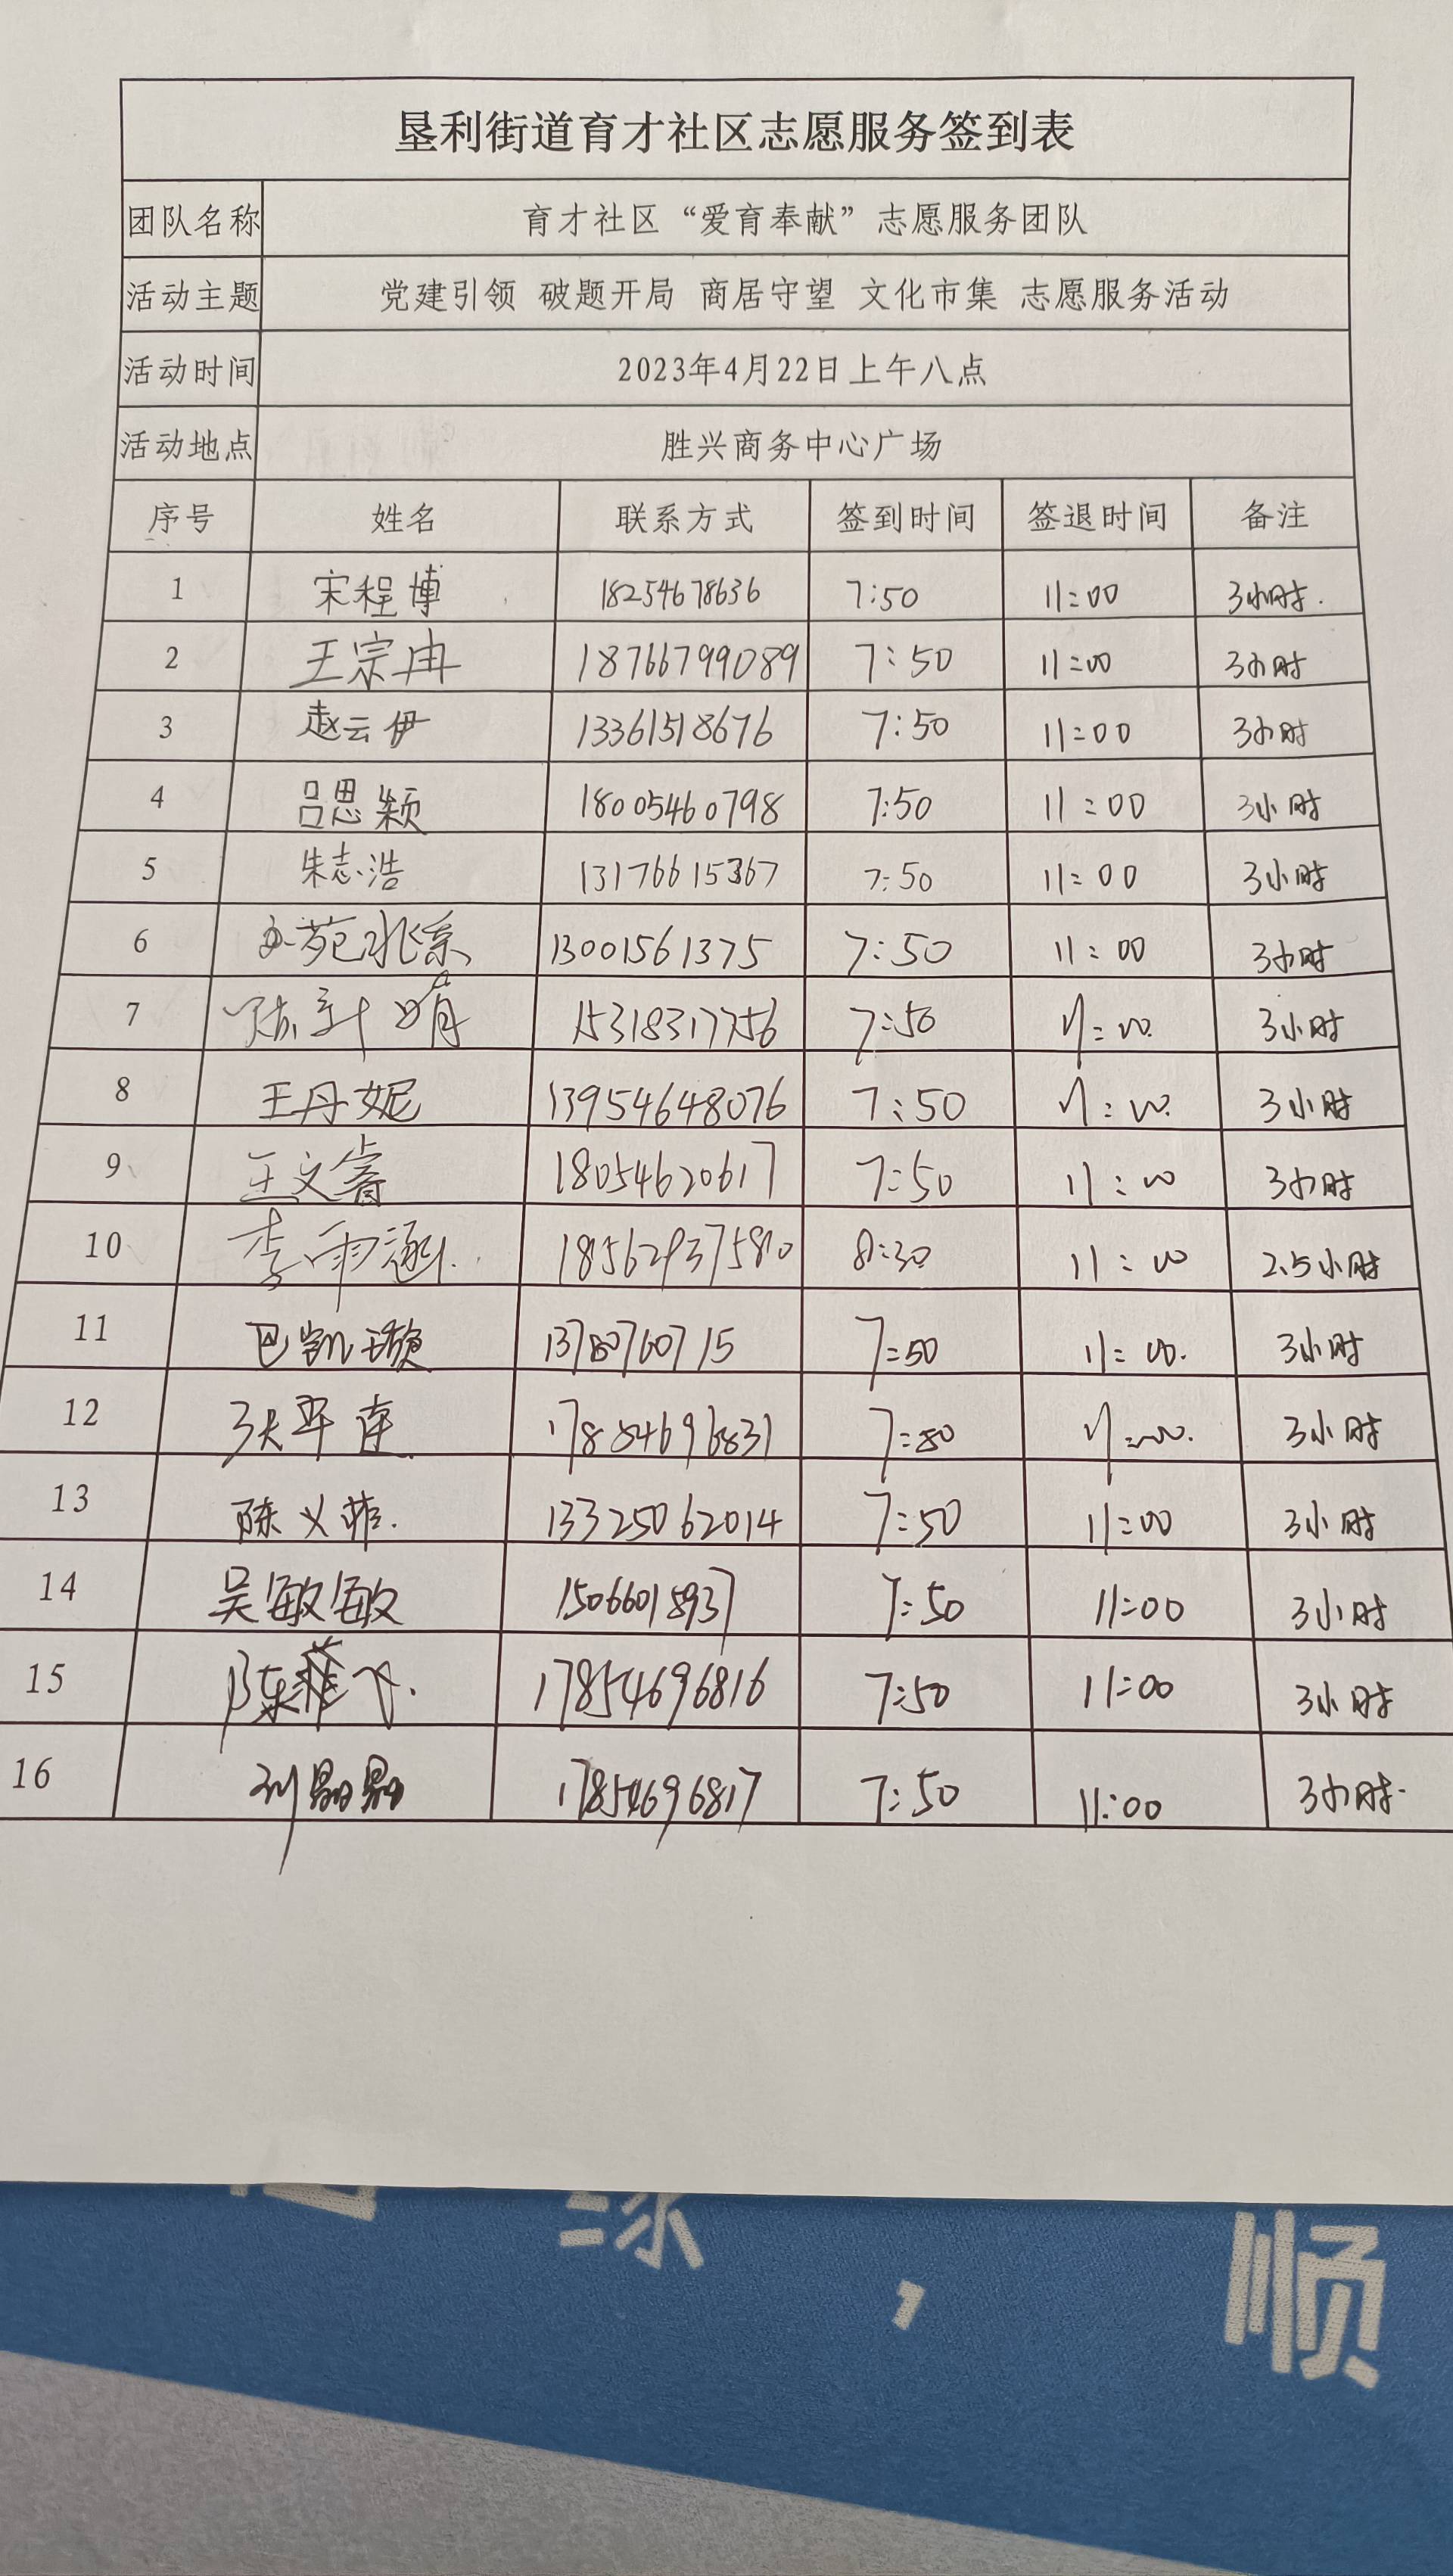 垦利街道育才社区志愿服务签到表
团队名称 育才社区“爱育奉献”志愿服务团队
活动主题 党建引领 破题开局 商居守望 文化市集 志愿服务活动
活动时间 2023年4月22日上午八点
活动地点 胜兴商务中心广场
序号 姓名 联系方式 签到时间 签退时间 备注
1 宋程博 18254678636 7:50 11:00 3小时.
2 王宗冉 18766799089 7:50 11:00 3小时
3 赵云伊 13361518676 7:50 11:00 3小时
4 吕思颖 18005460798 7:50 11:00 3小时
5 朱志浩 13176615367 7:50 11:00 3小时
6 13001561375 7:50 11:00 3小时
7 15318317756 7:50 11:00 3小时
8 王丹妮 13954648076 7:50 11:00 3小时
9 王文睿 18054620617 7:50 11:00 3小时
10 李雨涵 8:30 11:00 2.5小时
11 巴凯璇 13780760715 7:50 11:00 3小时
12 17854696831 7:50 11:00 3小时
13 陈义菲 13325062014 7:50 11:00 3小时
14 吴敏敏 15066018937 7:50 11:00 3小时
15 17854696816 7:50 11:00 3小时
16 17854696817 7:50 11:00 3小时
， 顺